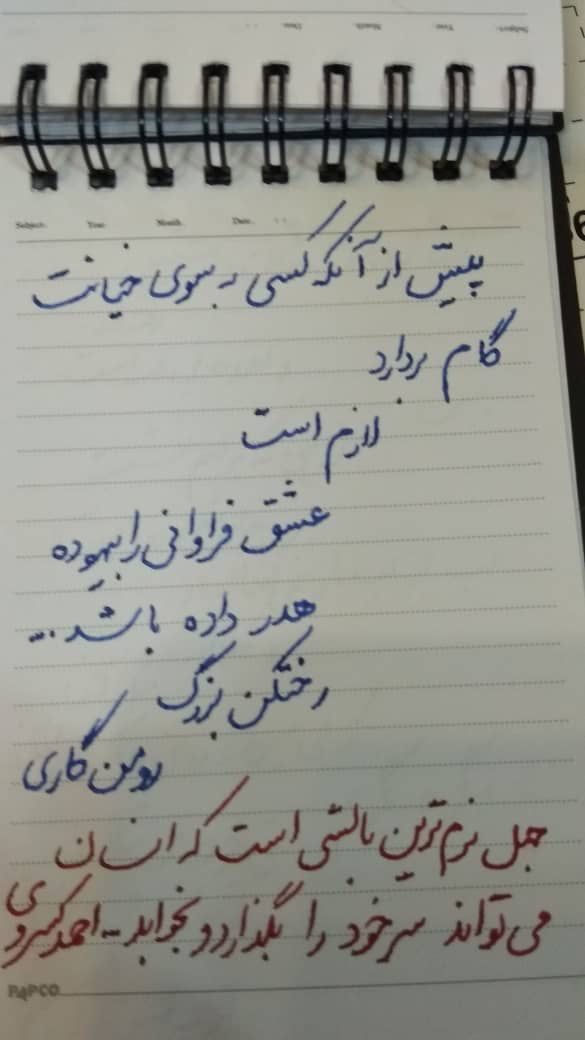 Subject: Year: Month: Date:
پیش از آنکه کسی به سوی خیانت
گام بردارد
لازم است
عشق فراوانی را بیهوده
هدر داده باشد...
رختکن بزرگ
رومن گاری
جهل نرم‌ترین بالشی است که انسان
می‌تواند سر خود را بگذارد و بخوابد... احمد کسروی
PAPCO